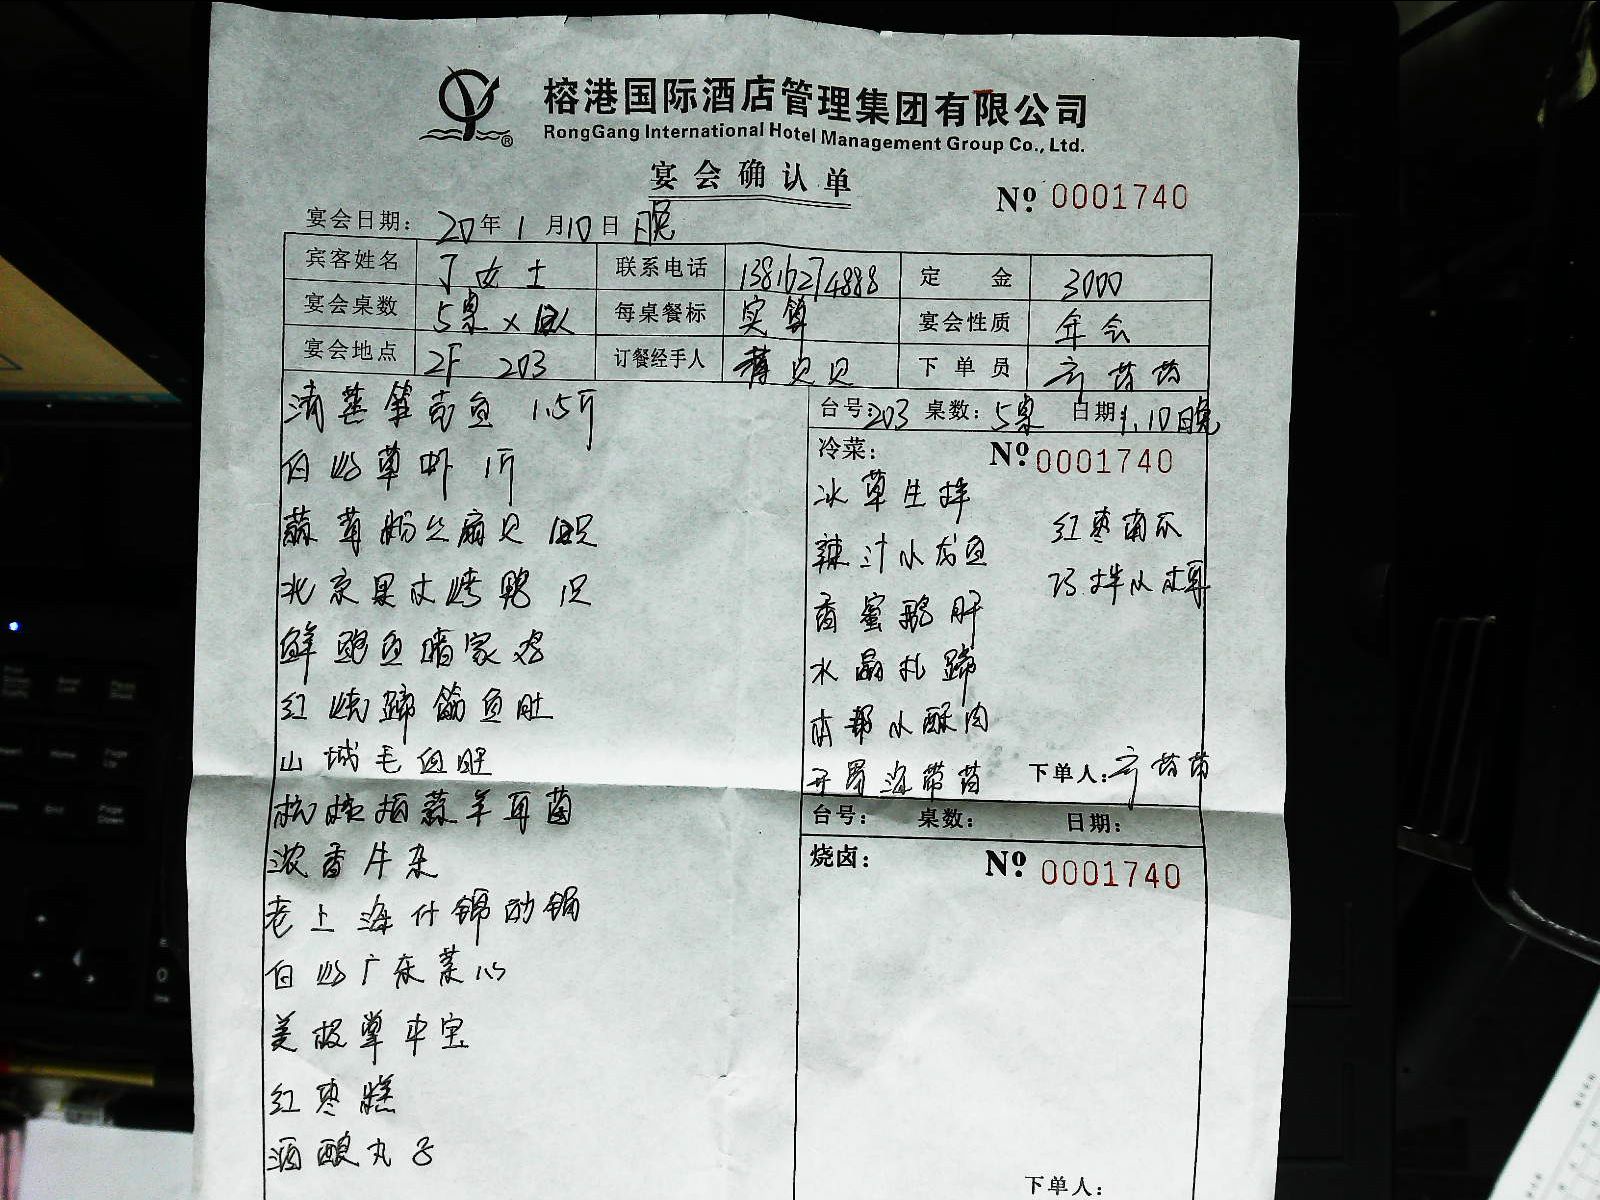 榕港国际酒店管理集团有限公司
RongGang International Hotel Management Group Co., Ltd.
宴会确认单
Nº 0001740
宴会日期: 20年1月10日 晚
宾客姓名 丁女士 联系电话 13816274888 定金 3000
宴会桌数 5桌× 每桌餐标 实算 宴会性质 年会
宴会地点 2F 203 订餐经手人 贝贝 下单员
清蒸笋壳鱼 1.5斤
白灼草虾 1斤
蒜茸粉丝扇贝
北京果木烤鸭 1只
鲜鲍鱼焗家鸡
红烧蹄筋鱼肚
山城毛血旺
杭椒拍蒜羊耳菌
浓香牛杂
老上海什锦砂锅
白灼广东菜心
美极掌中宝
红枣糕
酒酿丸子
台号: 203 桌数: 5桌 日期: 1.10晚
冷菜: Nº 0001740
冰草生拌
辣汁小龙鱼
香蜜鹅肝
水晶扎蹄
本帮小酥肉
开胃海带苗
红枣南瓜
巧拌小木耳
下单人:
台号: 桌数: 日期:
烧卤: Nº 0001740
下单人: